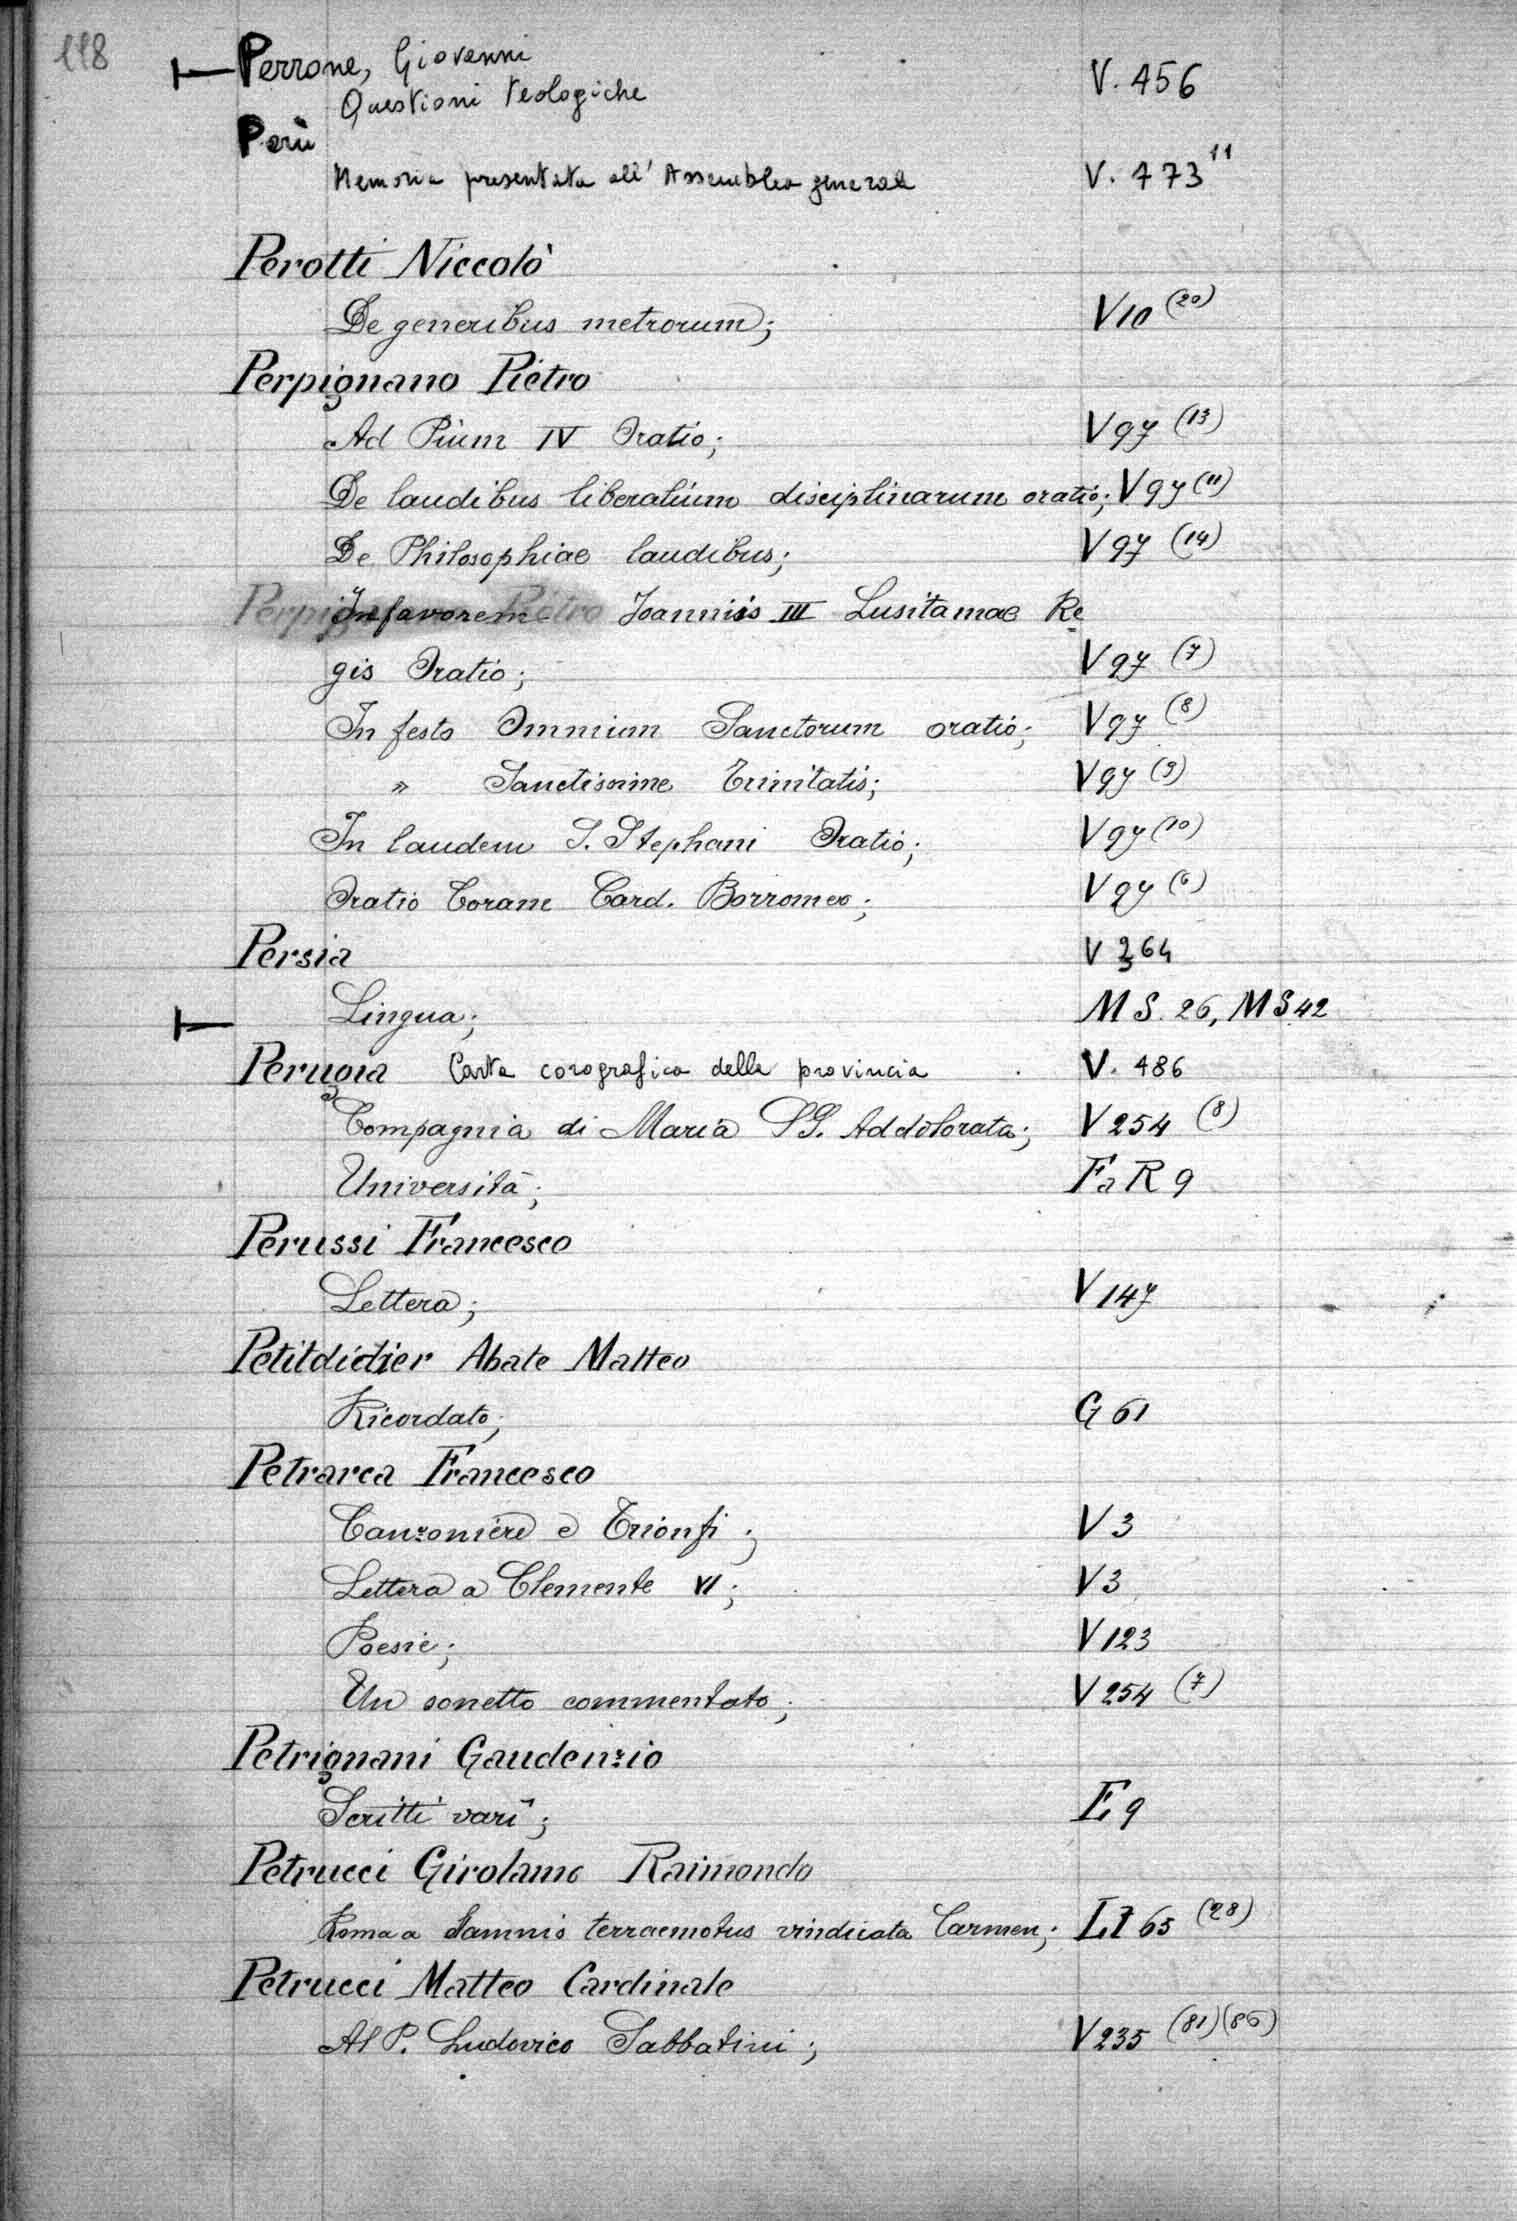 118
Perrone, Giovanni V. 456
Questioni teologiche
Perù
Memoria presentata all' Assemblea generale V. 473 11
Perotti Niccolò
De generibus metrorum; V 10 (20)
Perpignano Pietro
Ad Pium IV Oratio; V 97 (13)
De laudibus liberalium disciplinarum oratio; V 97 (11)
De Philosophiae laudibus; V 97 (14)
In favorem Joannis III Lusitamae Re
gis Oratio; V 97 (7)
In festo Omnium Sanctorum oratio; V 97 (8)
» Sanctissime Trinitatis; V 97 (9)
In laudem S. Stephani Oratio; V 97 (10)
Oratio Coram Card. Borromeo; V 97 (6)
Persia V 364
Lingua; MS. 26, MS 42
Perugia Carta corografica della provincia V. 486
Compagnia di Maria SS. Addolorata; V 254 (8)
Università; Fa R 9
Perussi Francesco
Lettera; V 147
Petitdidier Abate Matteo
Ricordato; G 61
Petrarca Francesco
Canzoniere e Trionfi; V 3
Lettera a Clemente VI; V 3
Poesie; V 123
Un sonetto commentato; V 254 (7)
Petrignani Gaudenzio
Scritti varî; E 9
Petrucci Girolamo Raimondo
Roma a Damnis terraemotus vindicata Carmen; LI 65 (28)
Petrucci Matteo Cardinale
Al P. Ludovico Sabbatini; V 235 (81) (86)